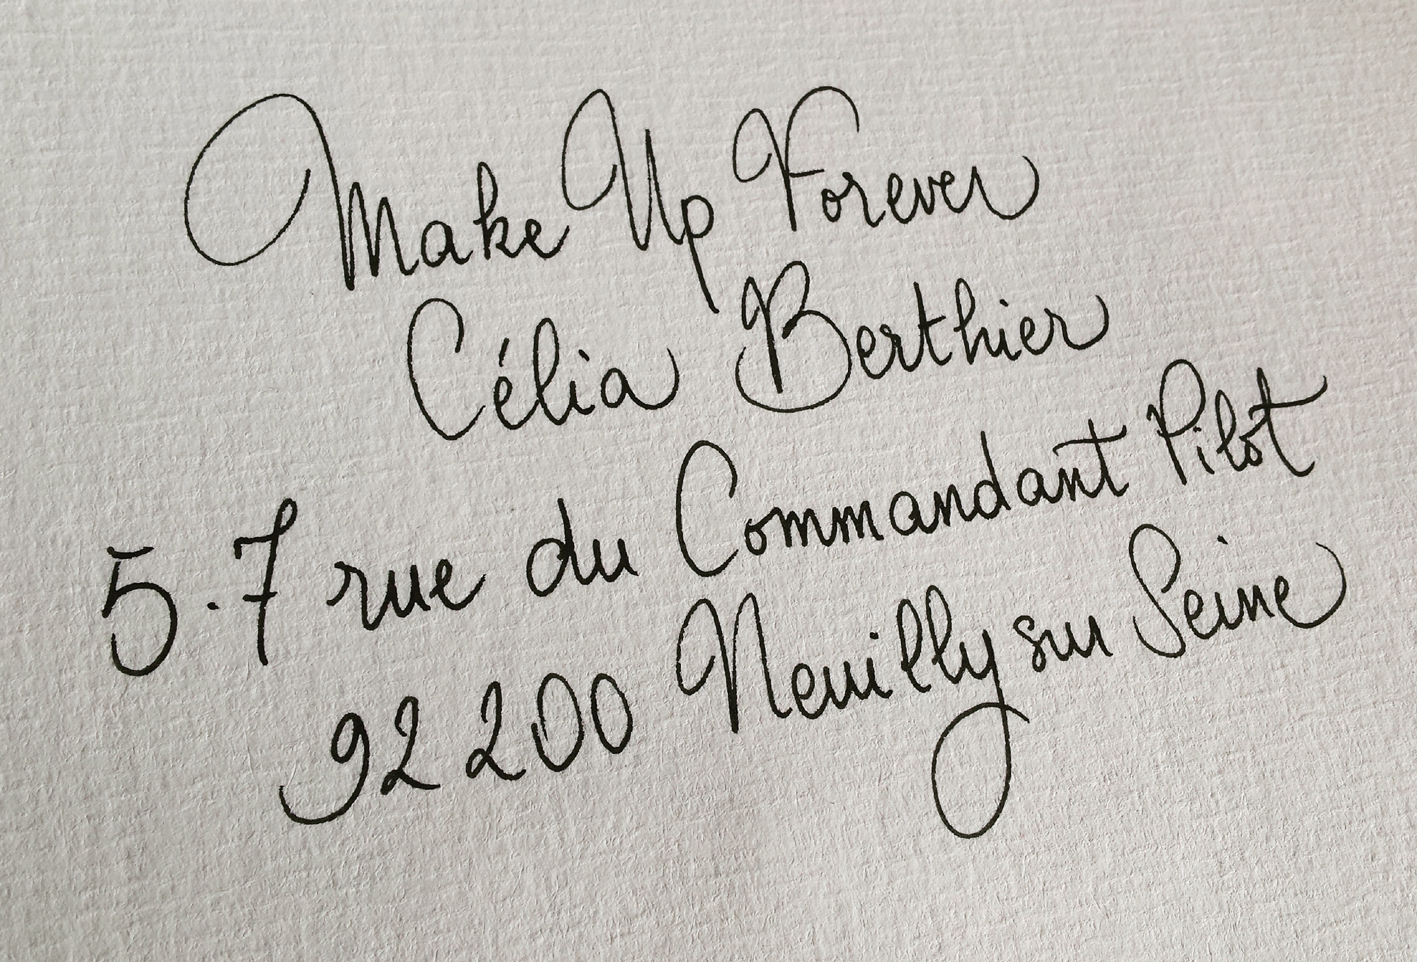 Make Up Forever
Célia Berthier
5.7 rue du Commandant Pilot
92 200 Neuilly sur Seine